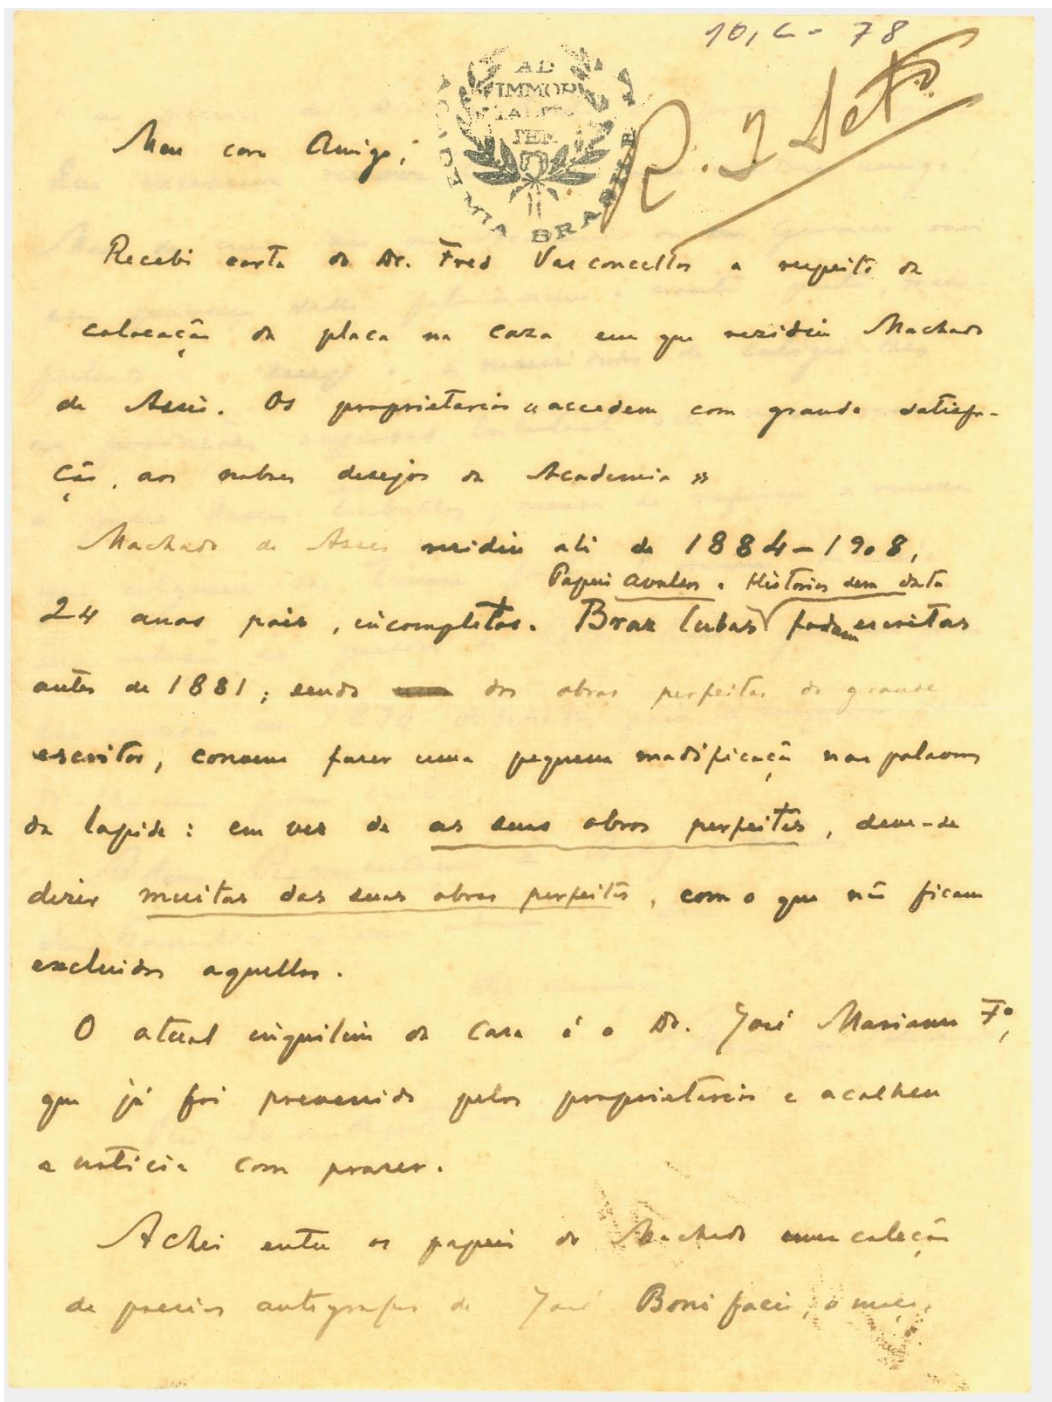 10, C - 78
AD
IMMOR
TALITA
TEM
ACADEMIA BRASILEIRA
R. 2 Setº
Meu caro Amigo;
Recebi carta do Dr. Fred Vasconcellos a respeito da
colocação da placa na caza em que rezidiu Machado
de Assis. Os proprietarios «accedem com grande satisfa-
ção, aos nobres desejos da Academia»
Machado de Assis rezidiu ali de 1884–1908,
Papeis avulsos e Historias sem data
24 anos pois, incompletos. Braz Cubas foram escritas
antes de 1881; sendo das obras perfeitas do grande
escritor, convem fazer uma pequena modificação nas palavras
da lapide: em vez de as suas obras perfeitas, deve-se
dizer muitas das suas obras perfeitas, com o que não ficam
excluidas aquellas.
O atual inquilino da casa é o Dr. José Marianno Fº,
que já foi prevenido pelos proprietarios e acolheu
a noticia com prazer.
Achei entre os papeis do Machado uma coleção
de poesias autografas de José Bonifacio, o moço,